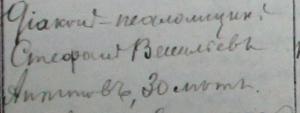 Діаконъ-псаломщикъ
Стефанъ Васильевъ
Антоновъ, 30 лѣтъ.